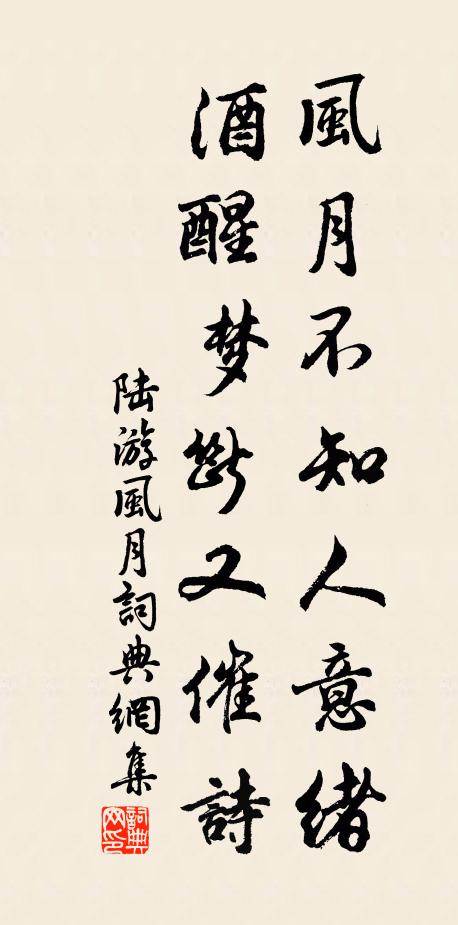 風月不知人意緒
酒醒梦斷又催詩
陆游風月詞典網集
詞典网印